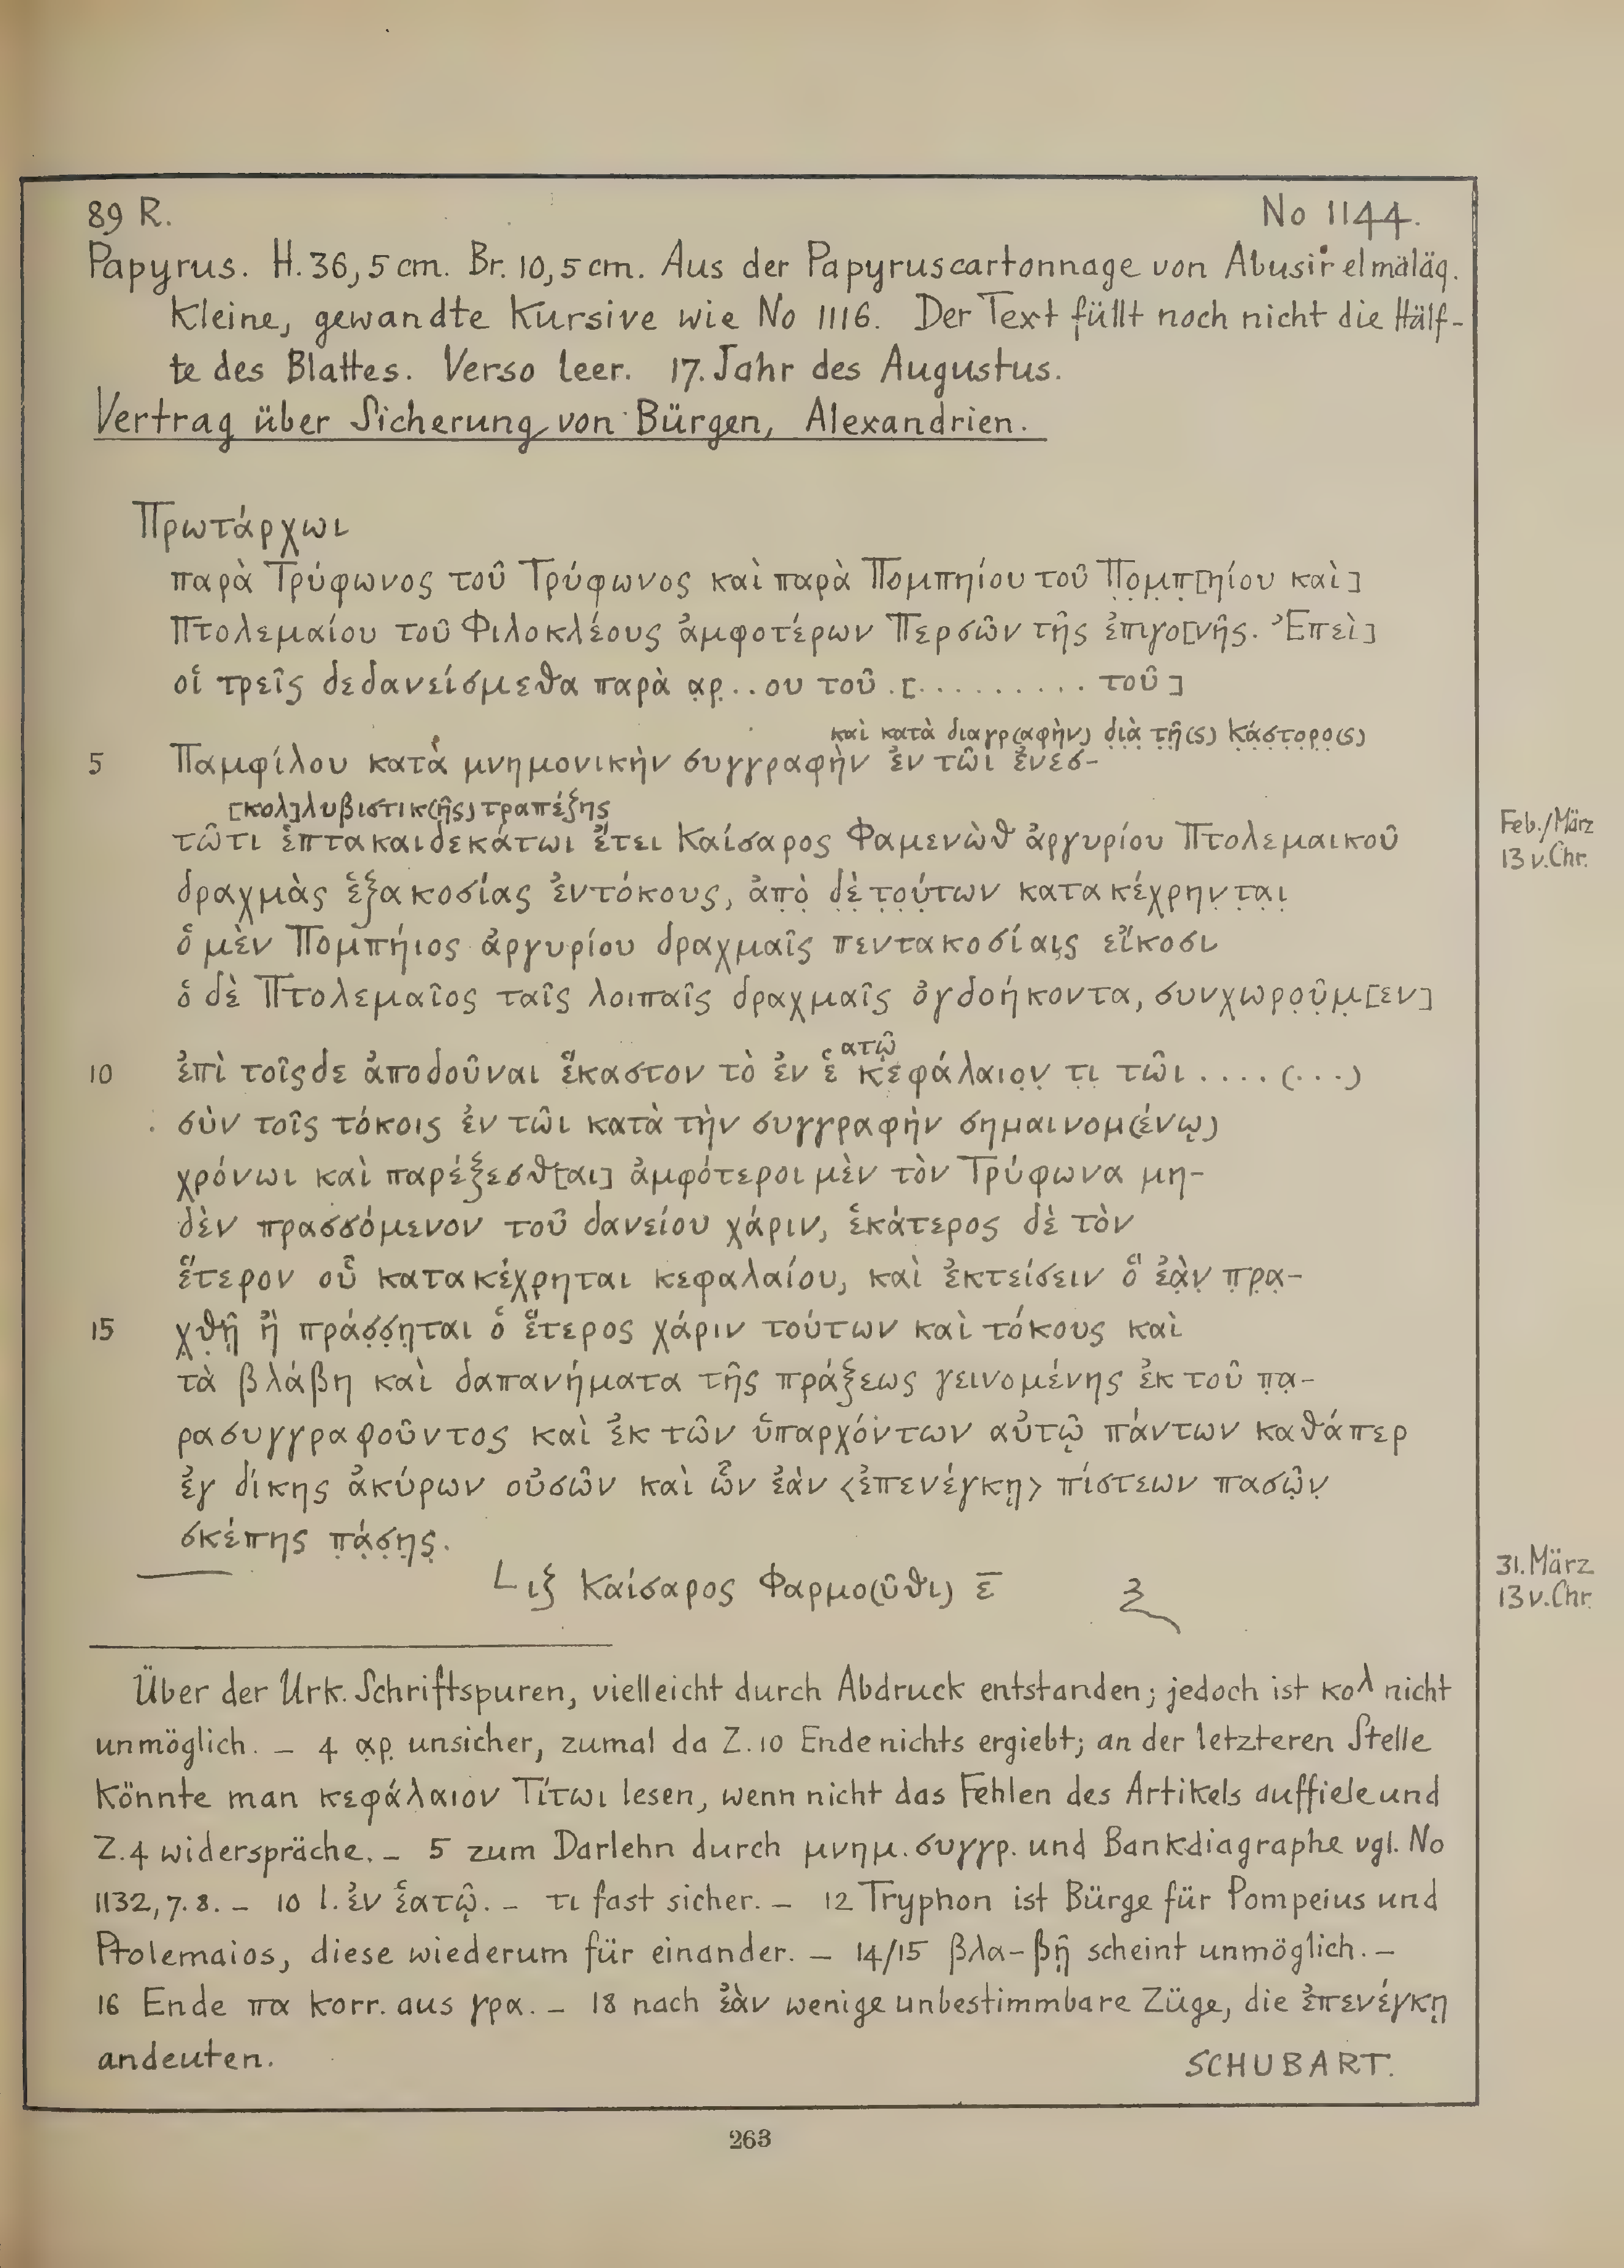 89 R. No 1144.
Papyrus. H. 36,5 cm. Br. 10,5 cm. Aus der Papyruscartonnage von Abusir el mäläq.
Kleine, gewandte Kursive wie No 1116. Der Text füllt noch nicht die Hälf-
te des Blattes. Verso leer. 17. Jahr des Augustus.
Vertrag über Sicherung von Bürgen, Alexandrien.
Πρωτάρχωι
παρὰ Τρύφωνος τοῦ Τρύφωνος καὶ παρὰ Πομπηίου τοῦ Π̣ο̣μ̣π̣[ηίου καὶ]
Πτολεμαίου τοῦ Φιλοκλέους ἀμφοτέρων Περσῶν τῆς ἐπιγο[νῆς. Ἐπεὶ]
οἱ τρεῖς δεδανείσμεθα παρὰ α̣ρ̣..ου τοῦ .[.......... τοῦ]
καὶ κατὰ διαγρ(αφὴν) δ̣ι̣ὰ τ̣ῆ̣(ς) Κ̣ά̣σ̣τ̣ο̣ρ̣ο̣(ς)
5 Παμφίλου κατὰ μνημονικὴν συγγραφὴν ἐν τῶι ἐνεσ-
[κολ]λυβιστικ(ῆς) τραπέζης
τῶτι ἑπτακαιδεκάτωι ἔτει Καίσαρος Φαμενὼθ ἀργυρίου Πτολεμαικοῦ
Feb./März
13 v. Chr.
δραχμὰς ἑξακοσίας ἐντόκους, ἀ̣π̣ὸ̣ δ̣ὲ̣ τ̣ο̣ύ̣των κατακέχρην̣τ̣α̣ι̣
ὁ μὲν Πομπήιος ἀργυρίου δραχμαῖς πεντακοσίαις εἴκοσι
ὁ δὲ Πτολεμαῖος ταῖς λοιπαῖς δραχμαῖς ὀγδοήκοντα, συνχωρο̣ῦ̣μ̣[εν]
ατῷ
10 ἐπὶ τοῖσδε ἀποδοῦναι ἕκαστον τὸ ἐν ἑ κεφάλαιο̣ν̣ τ̣ι̣ τῶι ....(...)
σὺν τοῖς τόκοις ἐν τῶι κατὰ τὴν συγγραφὴν σημαινομ(ένῳ)
χρόνωι καὶ παρέξεσθ[αι] ἀμφότεροι μὲν τὸν Τρύφωνα μη-
δὲν πρασσόμενον τοῦ δανείου χάριν, ἑκάτερος δὲ τὸν
ἕτερον οὗ κατακέχρηται κεφαλαίου, καὶ ἐκτείσειν ὃ ἐ̣ὰ̣ν̣ π̣ρ̣α̣-
15 χ̣θ̣ῇ̣ ἢ πράσ̣σ̣η̣ται ὁ ἕτερος χάριν τούτων καὶ τόκους καὶ
τὰ βλάβη καὶ δαπανήματα τῆς πράξεως γεινομένης ἐκ τοῦ π̣α̣-
ρασυγγραφοῦντος καὶ ἐκ τῶν ὑπαρχόντων αὐτῷ πάντων καθάπερ
ἐγ δίκης ἀκύρων οὐσῶν καὶ ὧν ἐὰν <ἐπενέγκῃ> πίστεων πασῶ̣ν̣
σκέπης π̣ά̣σ̣η̣ς̣.
31. März
13 v. Chr.
𐅹 ιζ Καίσαρος Φαρμο(ῦθι) ε̅
Über der Urk. Schriftspuren, vielleicht durch Abdruck entstanden; jedoch ist κολ nicht
unmöglich. – 4 α̣ρ̣ unsicher, zumal da Z. 10 Ende nichts ergiebt; an der letzteren Stelle
könnte man κεφάλαιον Τίτωι lesen, wenn nicht das Fehlen des Artikels auffiele und
Z. 4 widerspräche. – 5 zum Darlehn durch μνημ. συγγρ. und Bankdiagraphe vgl. No
1132, 7. 8. – 10 l. ἐν ἑατῷ. – τι fast sicher. – 12 Tryphon ist Bürge für Pompeius und
Ptolemaios, diese wiederum für einander. – 14/15 βλα-βῇ scheint unmöglich. –
16 Ende πα korr. aus γρα. – 18 nach ἐὰν wenige unbestimmbare Züge, die ἐπενέγκῃ
andeuten. SCHUBART.
263